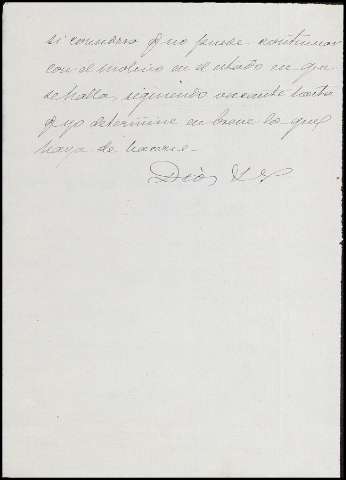 si considera que no puede continuar
con el molino en el estado en que
se halla, siguiendo vacante hasta
que yo determine en breve lo que
haya de hacerse.
Dios &